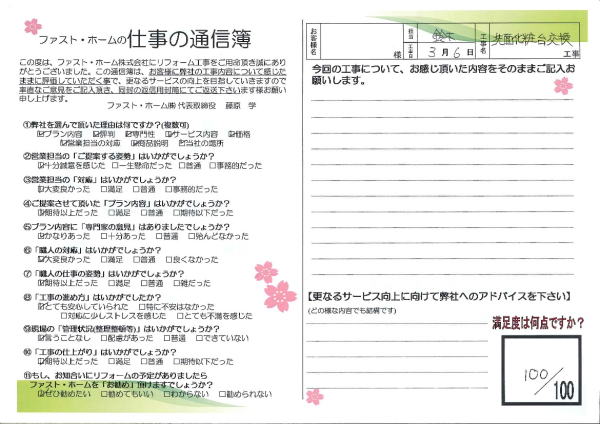 ファスト・ホームの仕事の通信簿
この度は、ファスト・ホーム株式会社にリフォーム工事をご用命頂き誠にあり
がとうございました。この通信簿は、お客様に弊社の工事内容について感じた
ままに評価していただく事で、更なるサービスの向上を目指していきますので
率直なご意見をご記入頂き、同封の返信用封筒にてご返送下さいます様お願い
申し上げます。
ファスト・ホーム㈱ 代表取締役 藤原 学
①弊社を選んで頂いた理由は何ですか?(複数可)
☑プラン内容 ☑評判 ☑専門性 ☑サービス内容 ☑価格
☑営業担当の対応 ☑商品説明 ☑当社の場所
②営業担当の「ご提案する姿勢」はいかがでしょうか?
☑十分誠意を感じた □一生懸命だった □普通 □事務的だった
③営業担当の「対応」はいかがでしょうか?
☑大変良かった □満足 □普通 □事務的だった
④ご提案させて頂いた「プラン内容」はいかがでしょうか?
☑期待以上だった □満足 □普通 □期待以下だった
⑤プラン内容に「専門家の意見」はありましたでしょうか?
☑かなりあった □十分あった □普通 □殆んどなかった
⑥「職人の対応」はいかがでしょうか?
☑大変良かった □満足 □普通 □良くなかった
⑦「職人の仕事の姿勢」はいかがでしょうか?
☑期待以上だった □満足 □普通 □雑だった
⑧「工事の進め方」はいかがでしたか?
☑とても安心していられた □特に不安はなかった
□対応に少しストレスを感じた □とても不満を感じた
⑨現場の「管理状況(整理整頓等)」はいかがでしょうか?
☑言うことなし □配慮があった □普通 □できていない
⑩「工事の仕上がり」はいかがでしょうか?
☑期待以上だった □満足 □普通 □期待以下だった
⑪もし、お知合いにリフォームの予定がありましたら
ファスト・ホームを「お勧め」頂けますでしょうか?
☑ぜひ勧めたい □勧めてもいい □わからない □勧められない
お客様名 様 担当 鈴木 工事名 洗面化粧台交換 工事
工事日 3月6日
今回の工事について、お感じ頂いた内容をそのままご記入お
願いします。
【更なるサービス向上に向けて弊社へのアドバイスを下さい】
(どの様な内容でも結構です)
満足度は何点ですか?
100/100